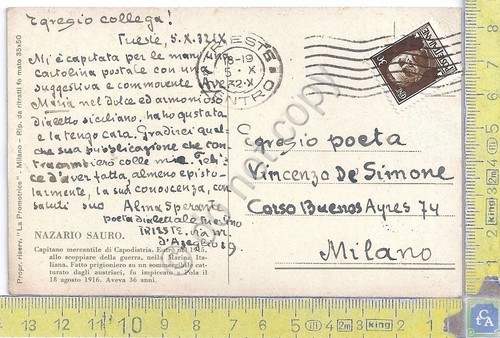 Egregio collega!
Trieste, 5.X.32 IX
Mi è capitata per le mani una
cartolina postale con una
suggestiva e commovente Ave
Maria nel dolce ed armonioso
dialetto siciliano, ha ho gustata
e la tengo cara. Gradirei qual-
che sua pubblicazione che con-
traccambierò colle mie. Feli-
ce d'aver fatta, almeno episto-
larmente, la sua conoscenza, con
saluti suo Alma Sperante
poeta dialettale triestino
TRIESTE, via M.
d'Azeglio 19
NAZARIO SAURO.
Capitano mercantile di Capodistria. Entrò nel 1915,
allo scoppiare della guerra, nella Marina Ita-
liana. Fatto prigioniero su un sommergibile cat-
turato dagli austriaci, fu impiccato a Pola il
18 agosto 1916. Aveva 36 anni.
Propr. riserv. "La Promotrice" - Milano - Rip. da ritratti fo mato 35x50
TRIESTE
18-19
5 X
32-X
CENTRO
Egregio poeta
Vincenzo De Simone
Corso Buenos Ayres 74
Milano
13 12 11 10 9 8 7 6 5 4 2m 3 king 2